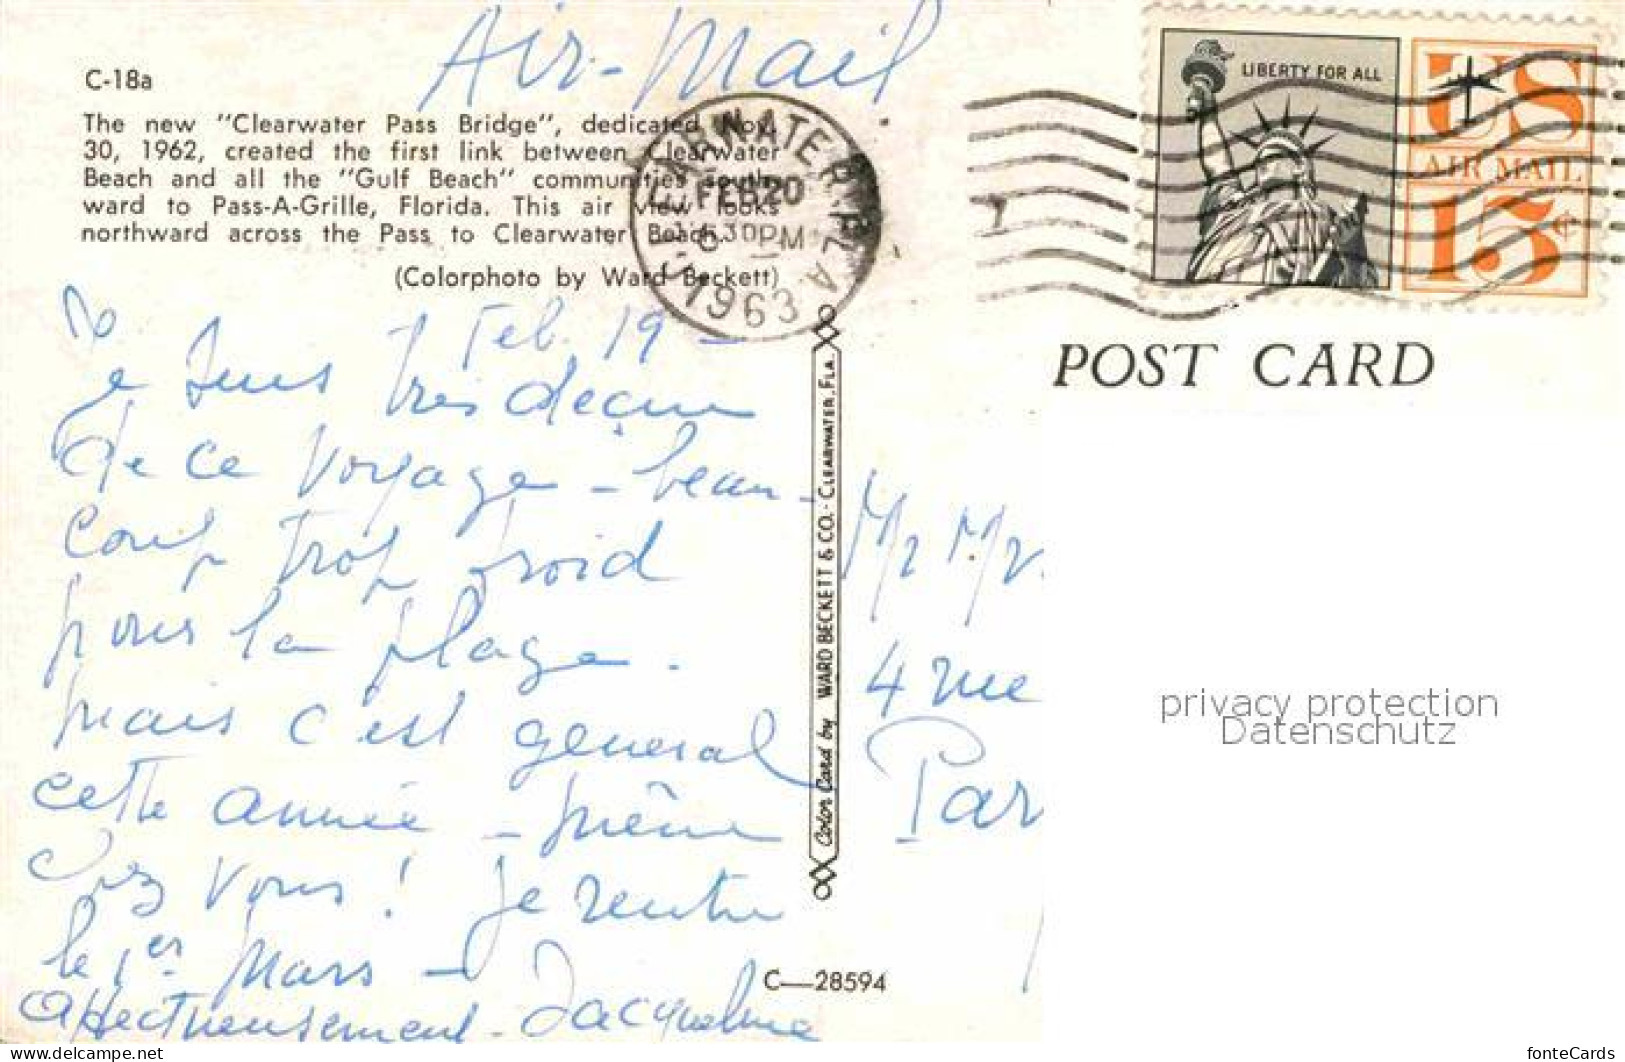 Air-Mail
C-18a
The new "Clearwater Pass Bridge", dedicated Nov.
30, 1962, created the first link between Clearwater
Beach and all the "Gulf Beach" communities south-
ward to Pass-A-Grille, Florida. This air view looks
northward across the Pass to Clearwater Beach.
(Colorphoto by Ward Beckett)
CLEARWATER, FLA
FEB 20
30 PM
1963
LIBERTY FOR ALL
US
AIR MAIL
15¢
POST CARD
Feb. 19 -
Je suis très déçue
de ce voyage - beau-
coup trop froid
pour la plage.
mais c'est general
cette année - même
chez vous! Je rentre
le 1er Mars -
affectueusement - Jacqueline
Color Card by WARD BECKETT & CO. - CLEARWATER, FLA.
4 rue
Par
C—28594
privacy protection
Datenschutz
www.delcampe.net
fonteCards